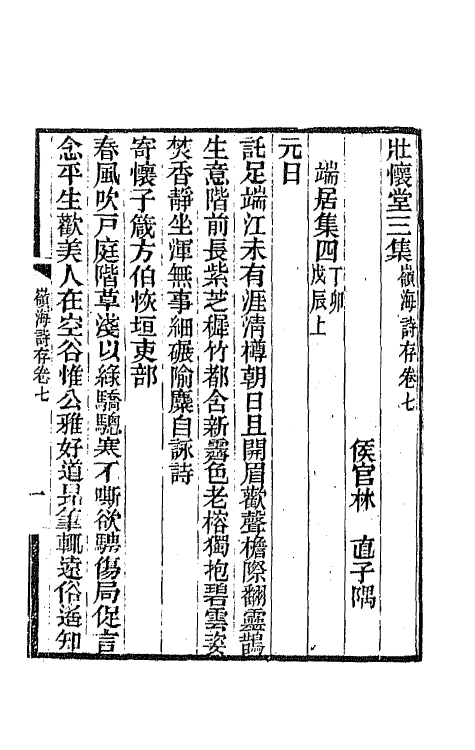 壯懷堂三集嶺海詩存卷七
侯官林　直子隅
端居集四丁卯戊辰上
元日
託足端江未有涯清樽朝日且開眉歡聲檐際翻靈鵲
生意階前長紫芝穉竹都含新霽色老榕獨抱碧雲姿
焚香靜坐渾無事細碾隃麋自詠詩
寄懷子箴方伯恢垣吏部
春風吹戸庭階草淺以綠驕驄寒不嘶欲騁傷局促言
念平生歡美人在空谷惟公雅好道吊筆輒遠俗遙知
嶺海詩存卷七
一